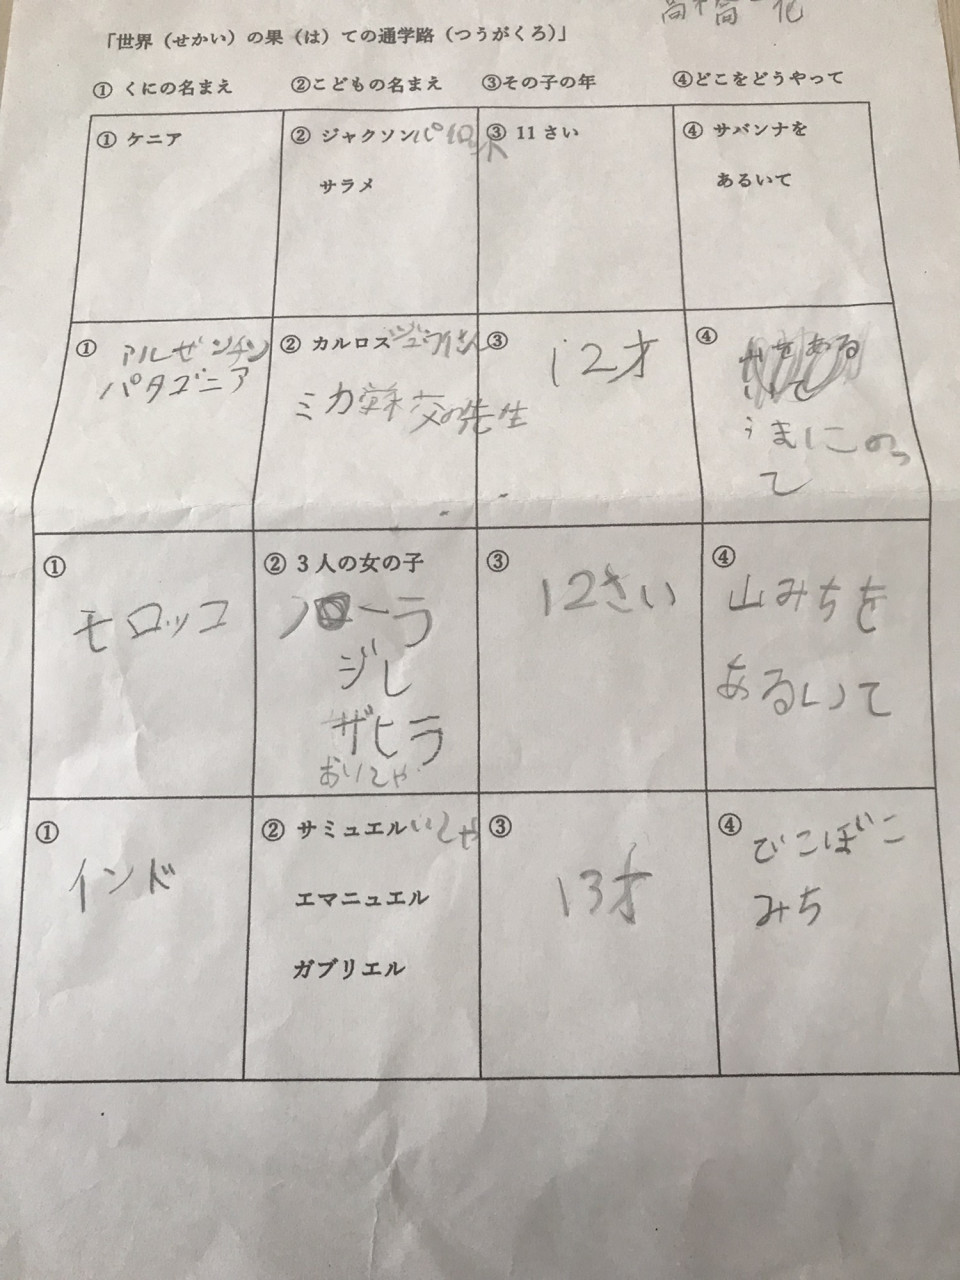 「世界（せかい）の果（は）ての通学路（つうがくろ）」
① くにの名まえ ②こどもの名まえ ③その子の年 ④どこをどうやって
① ケニア
② ジャクソン
サラメ
③ 11 さい
④ サバンナを
あるいて
① アルゼンチン
パタゴニア
② カルロス
ミカ
の先生
③ 12才
④
うまにのっ
て
① モロッコ
② 3人の女の子
ノローラ
ジし
ザヒラ
おいしゃ
③ 12さい
④ 山みちを
あるいて
① インド
② サミュエルいしゃ
エマニュエル
ガブリエル
③ 13才
④ でこぼこ
みち